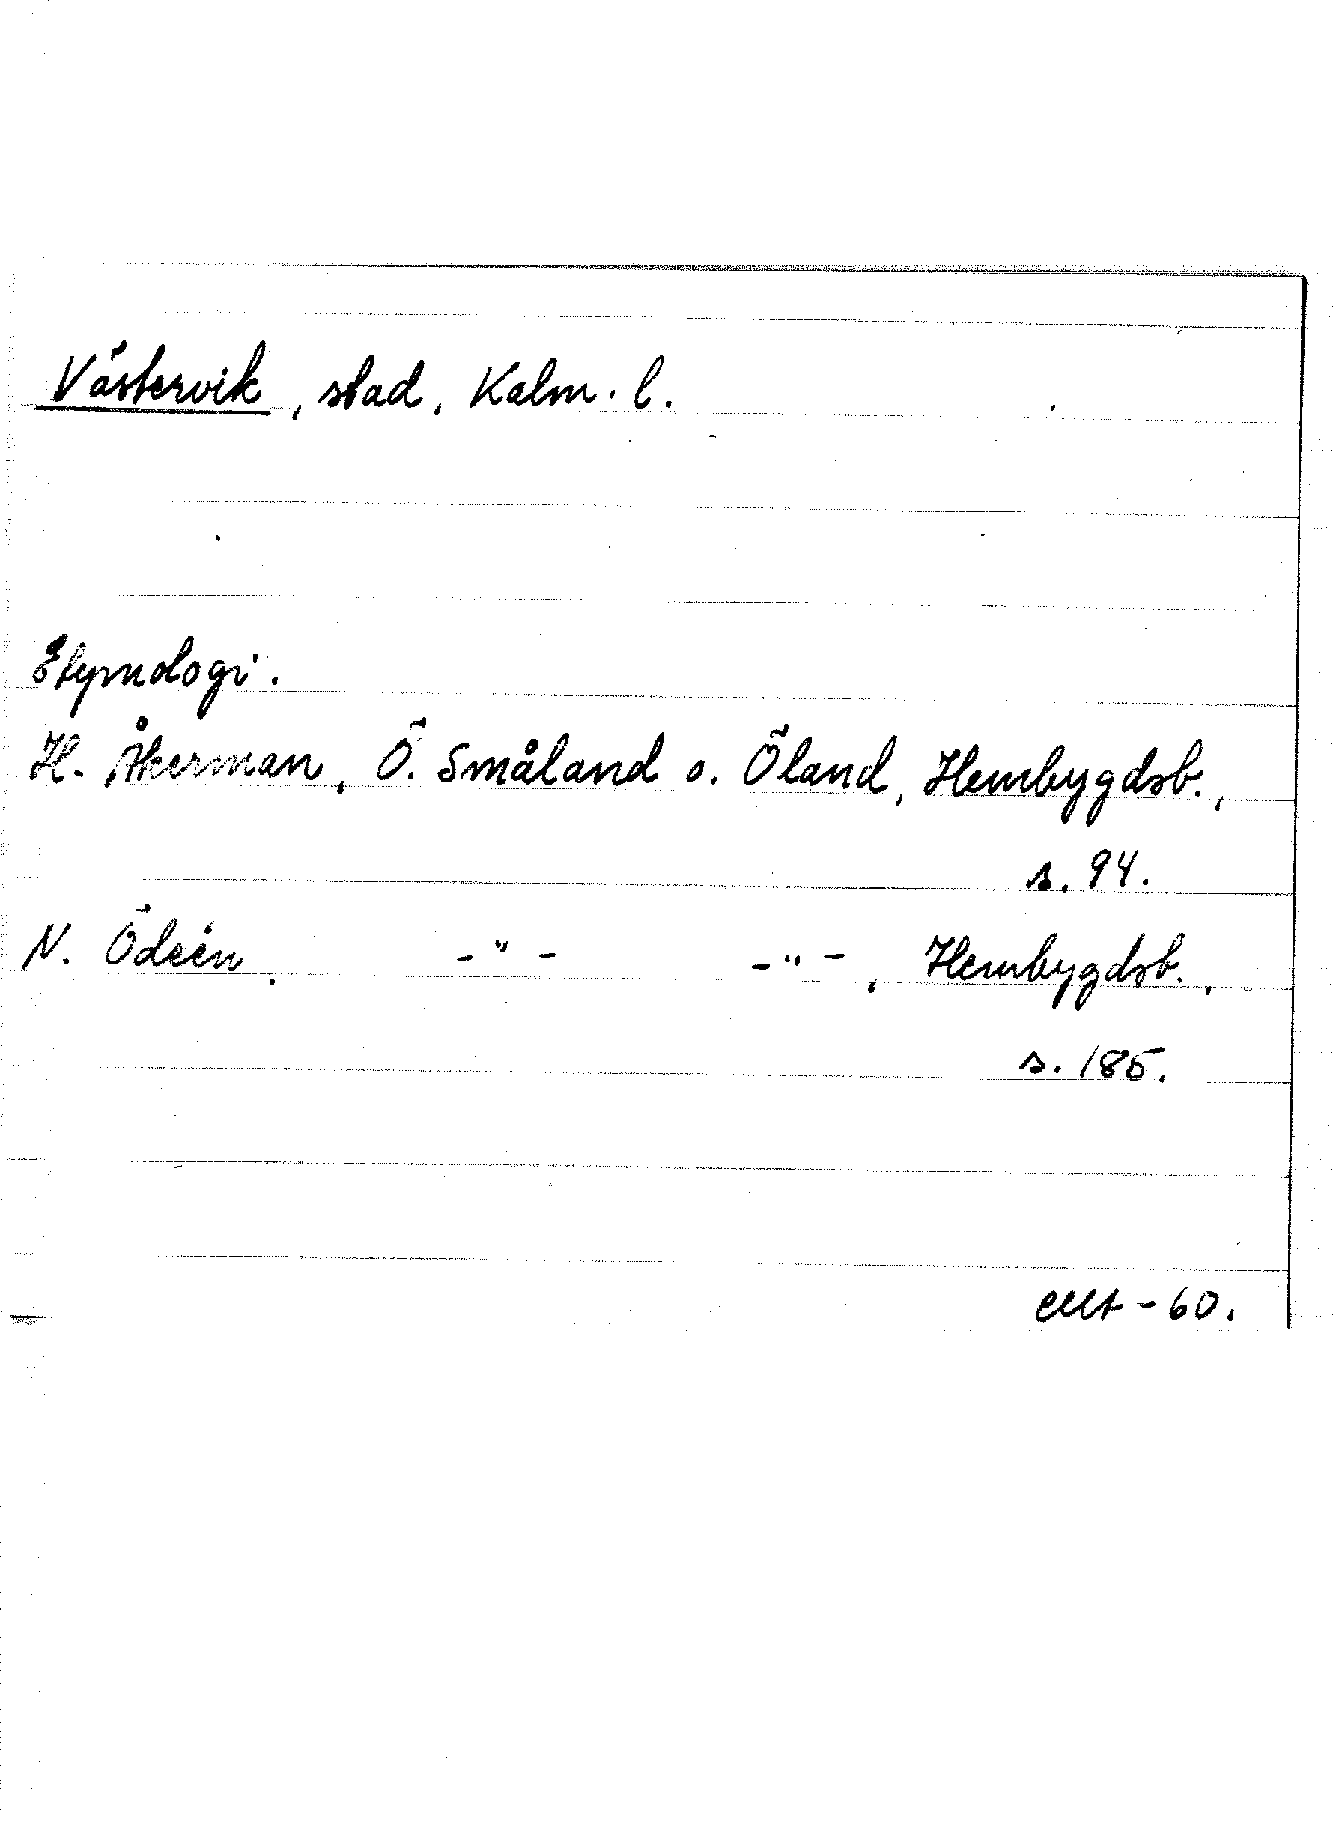 Västervik, stad, Kalm. l.
Etymologi.
H. Åkerman, Ö. Småland o. Öland, Hembygdsb.,
s. 94.
N. Ödeén, -"- -"-, Hembygdsb.,
s. 185.
-60.